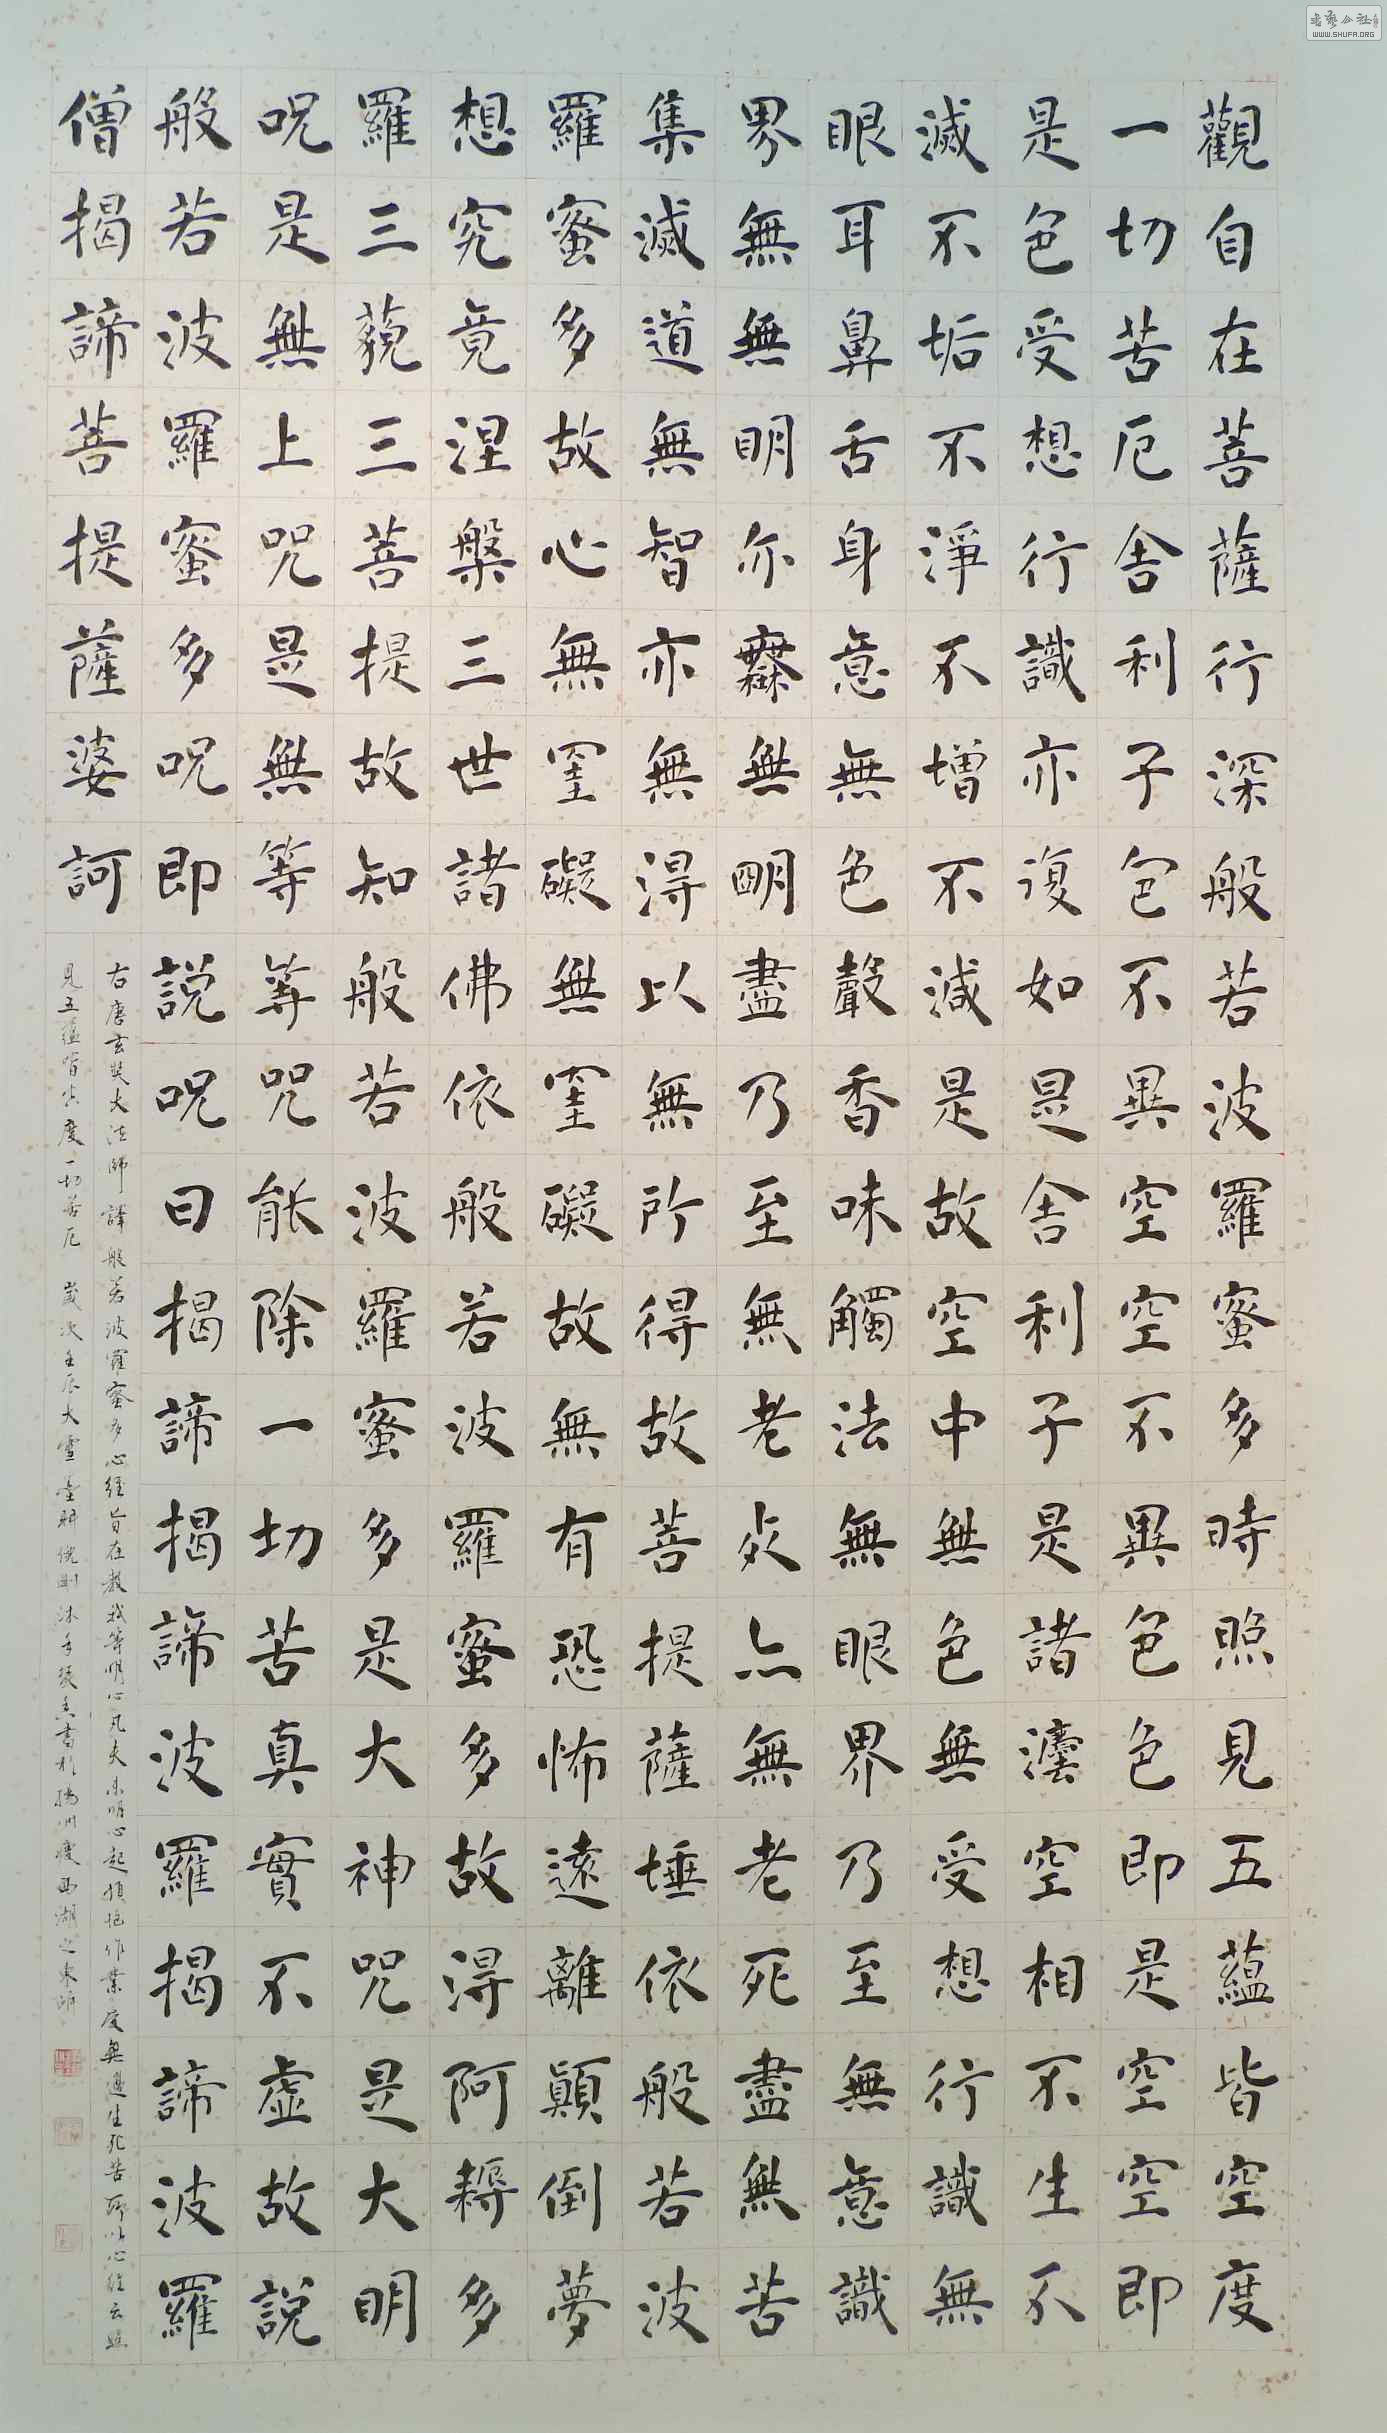 觀自在菩薩行深般若波羅蜜多時照見五蘊皆空度
一切苦厄舍利子色不異空空不異色色即是空空即
是色受想行識亦復如是舍利子是諸灋空相不生不
滅不垢不淨不增不減是故空中無色無受想行識無
眼耳鼻舌身意無色聲香味觸法無眼界乃至無意識
界無無明亦無無明盡乃至無老死亦無老死盡無苦
集滅道無智亦無得以無所得故菩提薩埵依般若波
羅蜜多故心無罣礙無罣礙故無有恐怖遠離顛倒夢
想究竟涅槃三世諸佛依般若波羅蜜多故得阿耨多
羅三藐三菩提故知般若波羅蜜多是大神咒是大明
呪是無上咒是無等等咒能除一切苦真實不虛故說
般若波羅蜜多呪即說呪曰揭諦揭諦波羅揭諦波羅
僧揭諦菩提薩婆訶
右唐玄奘大法師譯般若波羅蜜多心經旨在教我等明心凡夫未明心起煩惱作業度無邊生死苦所以心經云照
見五蘊皆空度一切苦厄 歲次壬辰大雪 倪剛沐手焚香書於揚州瘦西湖之東
書藝公社
WWW.SHUFA.ORG